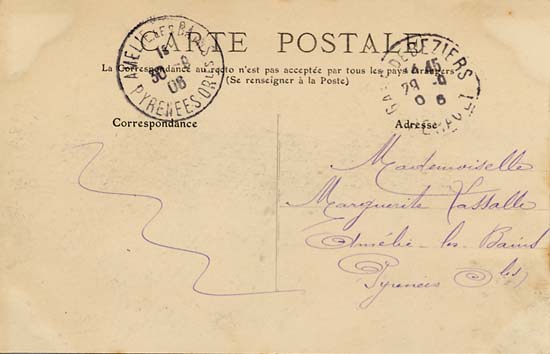 CARTE POSTALE
La Correspondance au recto n'est pas acceptée par tous les pays étrangers
(Se renseigner à la Poste)
AMELIE-LES-BAINS
15
30 -8
06
PYRENEES ORles
GARE DE BEZIERS
45
29 -8
06
Correspondance
Adresse
Mademoiselle
Marguerite Lassalle
Amélie-les-Bains
Pyrénées Oles)